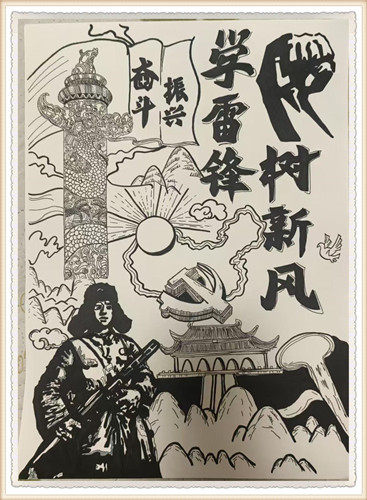 学雷锋
树新风
奋斗
振兴